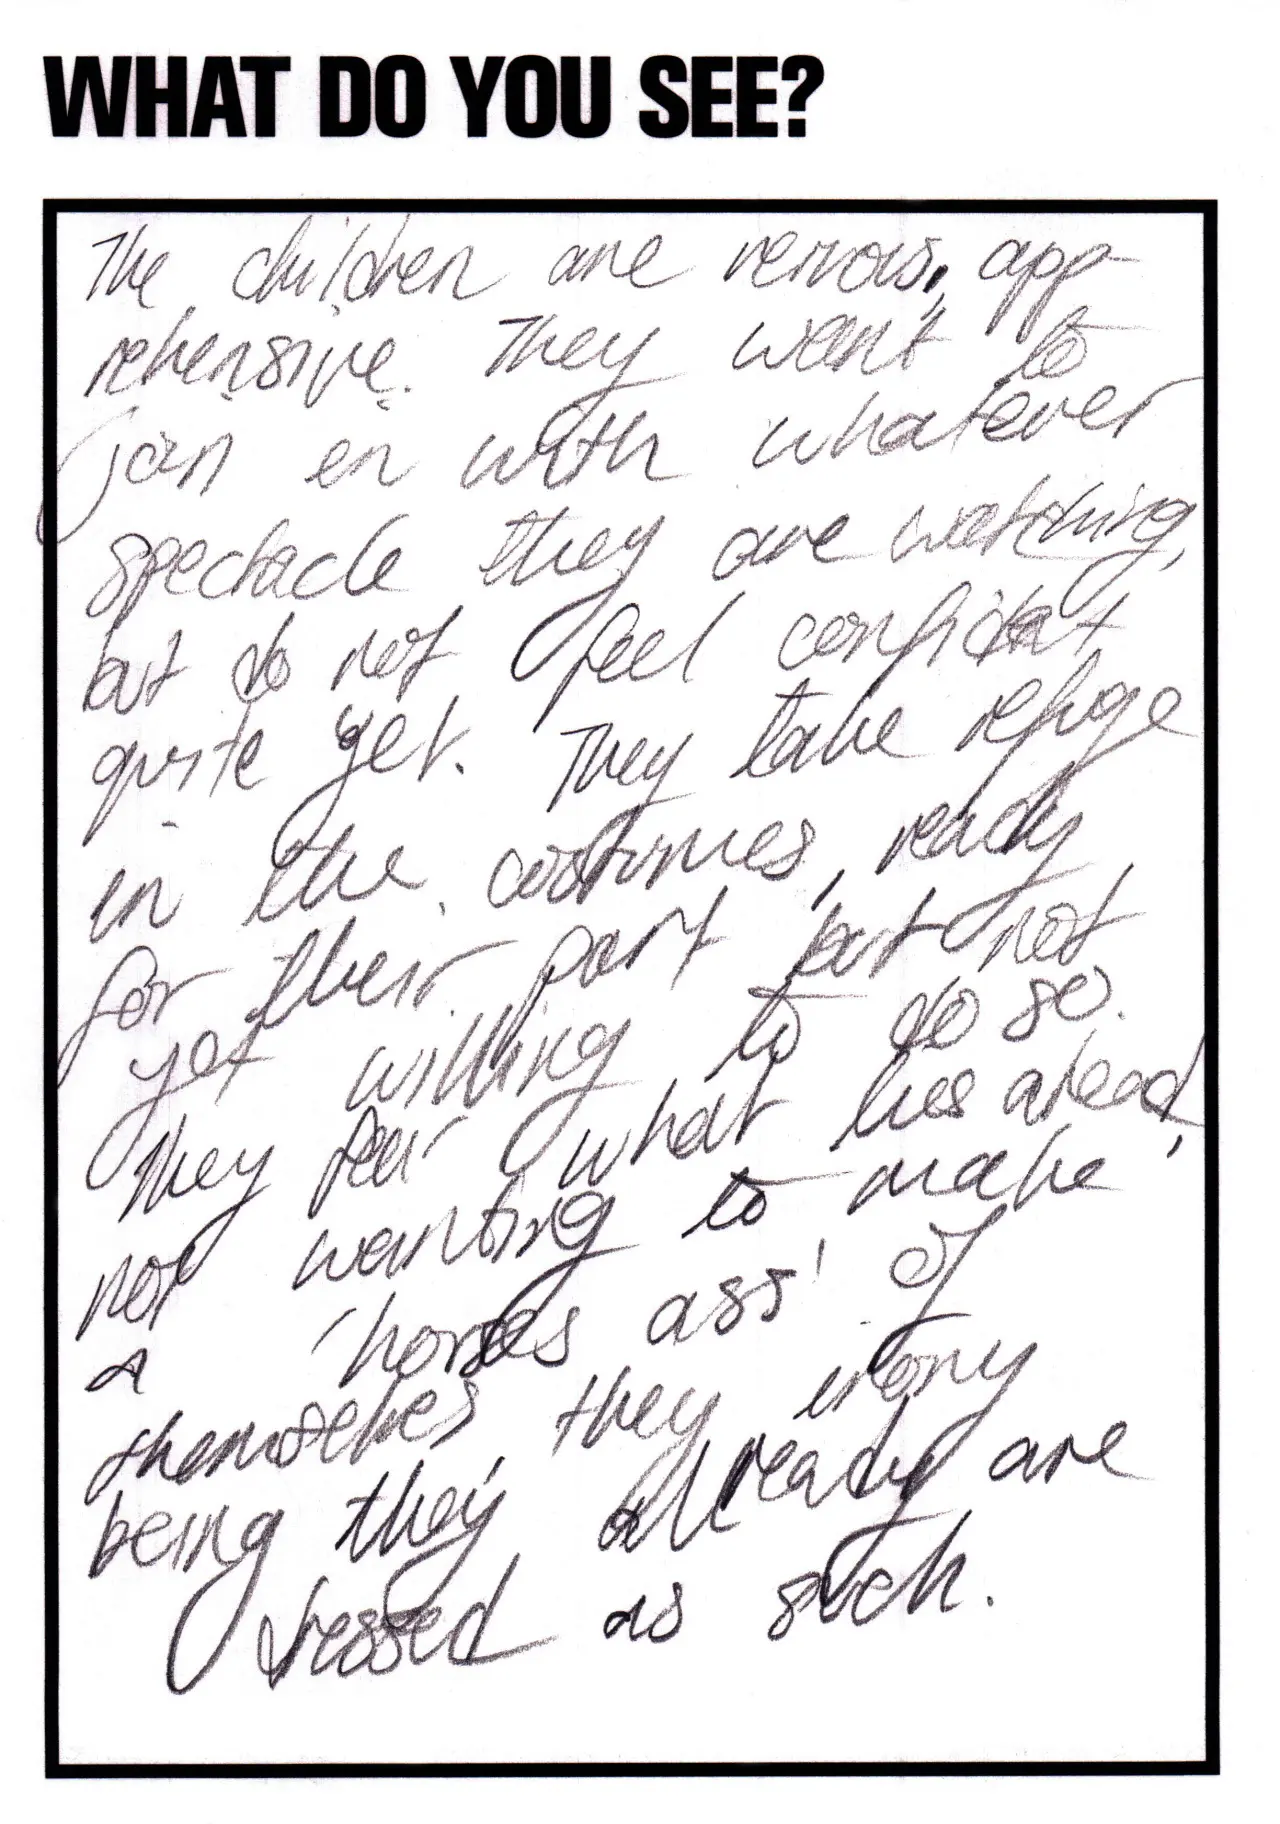 WHAT DO YOU SEE?
The children are nervous, app-
rehensive. They want to
join in with whatever
spectacle they are watching,
but do not feel confident
quite yet. They take refuge
in the costumes, ready
for their part but not
yet willing to do so.
They fear what lies ahead,
not wanting to make
a 'horses ass' of
themselves, they irony
being they already are
dressed as such.